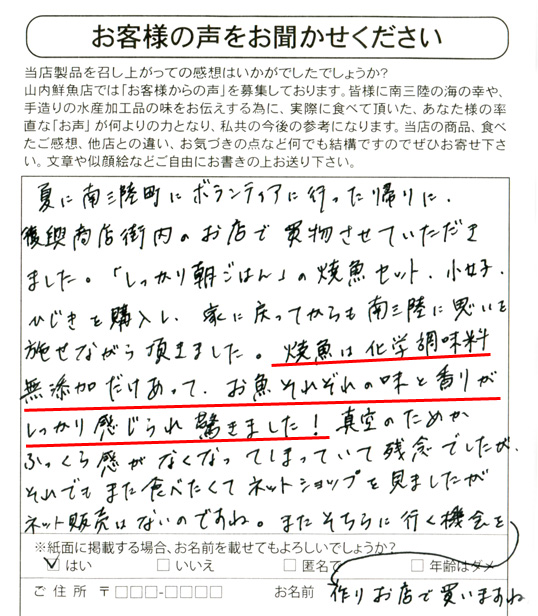 お客様の声をお聞かせください
当店製品を召し上がっての感想はいかがでしたでしょうか？
山内鮮魚店では「お客様からの声」を募集しております。皆様に南三陸の海の幸や、
手造りの水産加工品の味をお伝えする為に、実際に食べて頂いた、あなた様の率
直な「お声」が何よりの力となり、私共の今後の参考になります。当店の商品、食べ
たご感想、他店との違い、お気づきの点など何でも結構ですのでぜひお寄せ下さ
い。文章や似顔絵などご自由にお書きの上お送り下さい。
夏に南三陸町にボランティアに行った帰りに、
復興商店街内のお店で買物させていただき
ました。「しっかり朝ごはん」の焼魚セット、小女子、
ひじきを購入し、家に戻ってからも南三陸に思いを
馳せながら頂きました。焼魚は化学調味料
無添加だけあって、お魚それぞれの味と香りが
しっかり感じられ驚きました！真空のためか
ふっくら感がなくなってしまっていて残念でしたが、
それでもまた食べたくてネットショップを見ましたが
ネット販売はないのですね。またそちらに行く機会を
※紙面に掲載する場合、お名前を載せてもよろしいでしょうか？
はい いいえ 匿名で 年齢はダメ
ご住所 〒□□□-□□□□ お名前 作りお店で買いますね